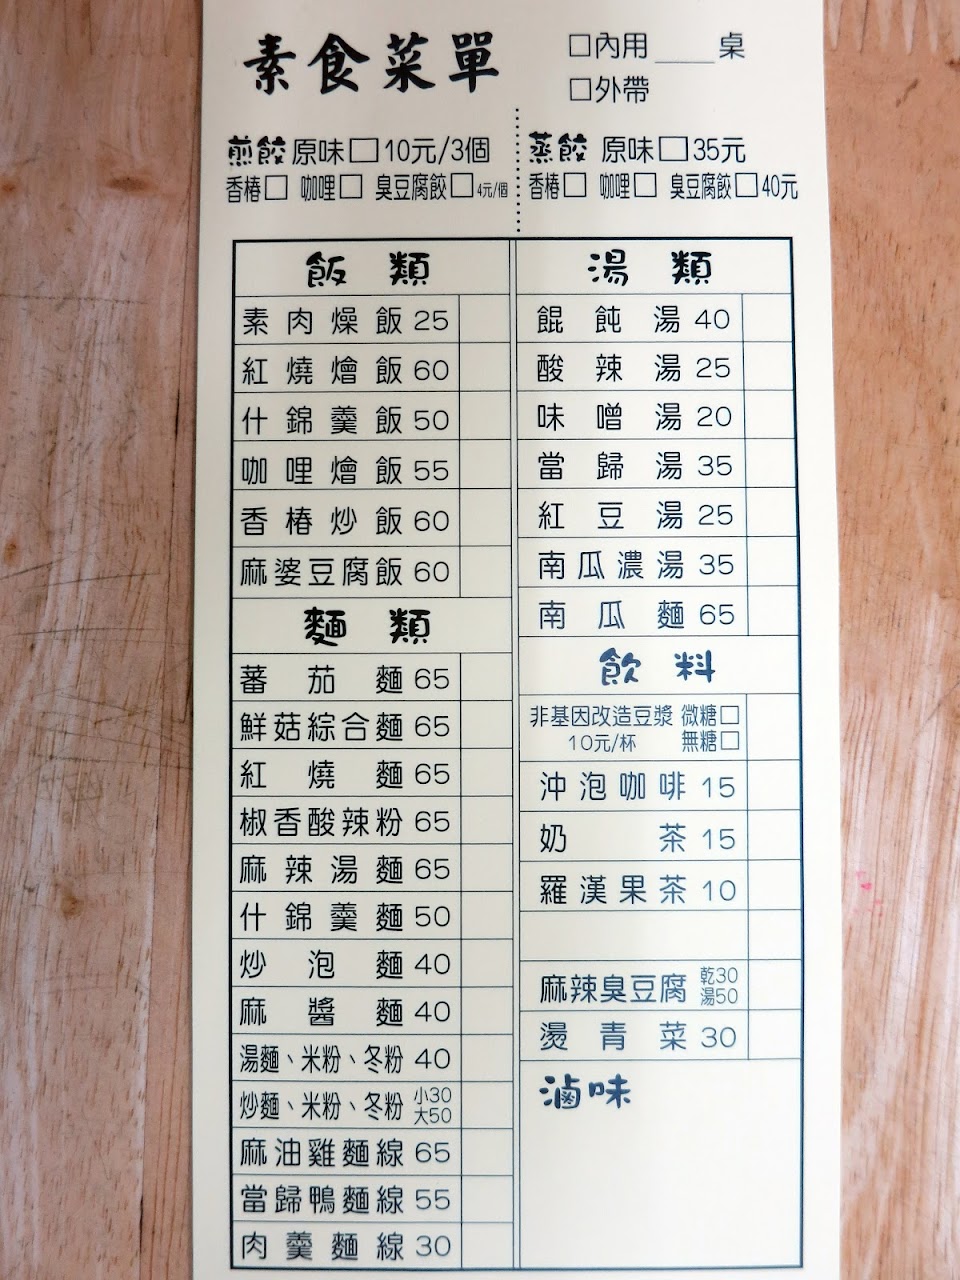 素食菜單
□內用____桌
□外帶
煎餃 原味□10元/3個
香椿□ 咖哩□ 臭豆腐餃□4元/個
蒸餃 原味□35元
香椿□ 咖哩□ 臭豆腐餃□40元
飯類
素肉燥飯 25
紅燒燴飯 60
什錦羹飯 50
咖哩燴飯 55
香椿炒飯 60
麻婆豆腐飯 60
麵類
蕃茄麵 65
鮮菇綜合麵 65
紅燒麵 65
椒香酸辣粉 65
麻辣湯麵 65
什錦羹麵 50
炒泡麵 40
麻醬麵 40
湯麵、米粉、冬粉 40
炒麵、米粉、冬粉 小30
大50
麻油雞麵線 65
當歸鴨麵線 55
肉羹麵線 30
湯類
餛飩湯 40
酸辣湯 25
味噌湯 20
當歸湯 35
紅豆湯 25
南瓜濃湯 35
南瓜麵 65
飲料
非基因改造豆漿 微糖□
10元/杯 無糖□
沖泡咖啡 15
奶茶 15
羅漢果茶 10
麻辣臭豆腐 乾30
湯50
燙青菜 30
滷味